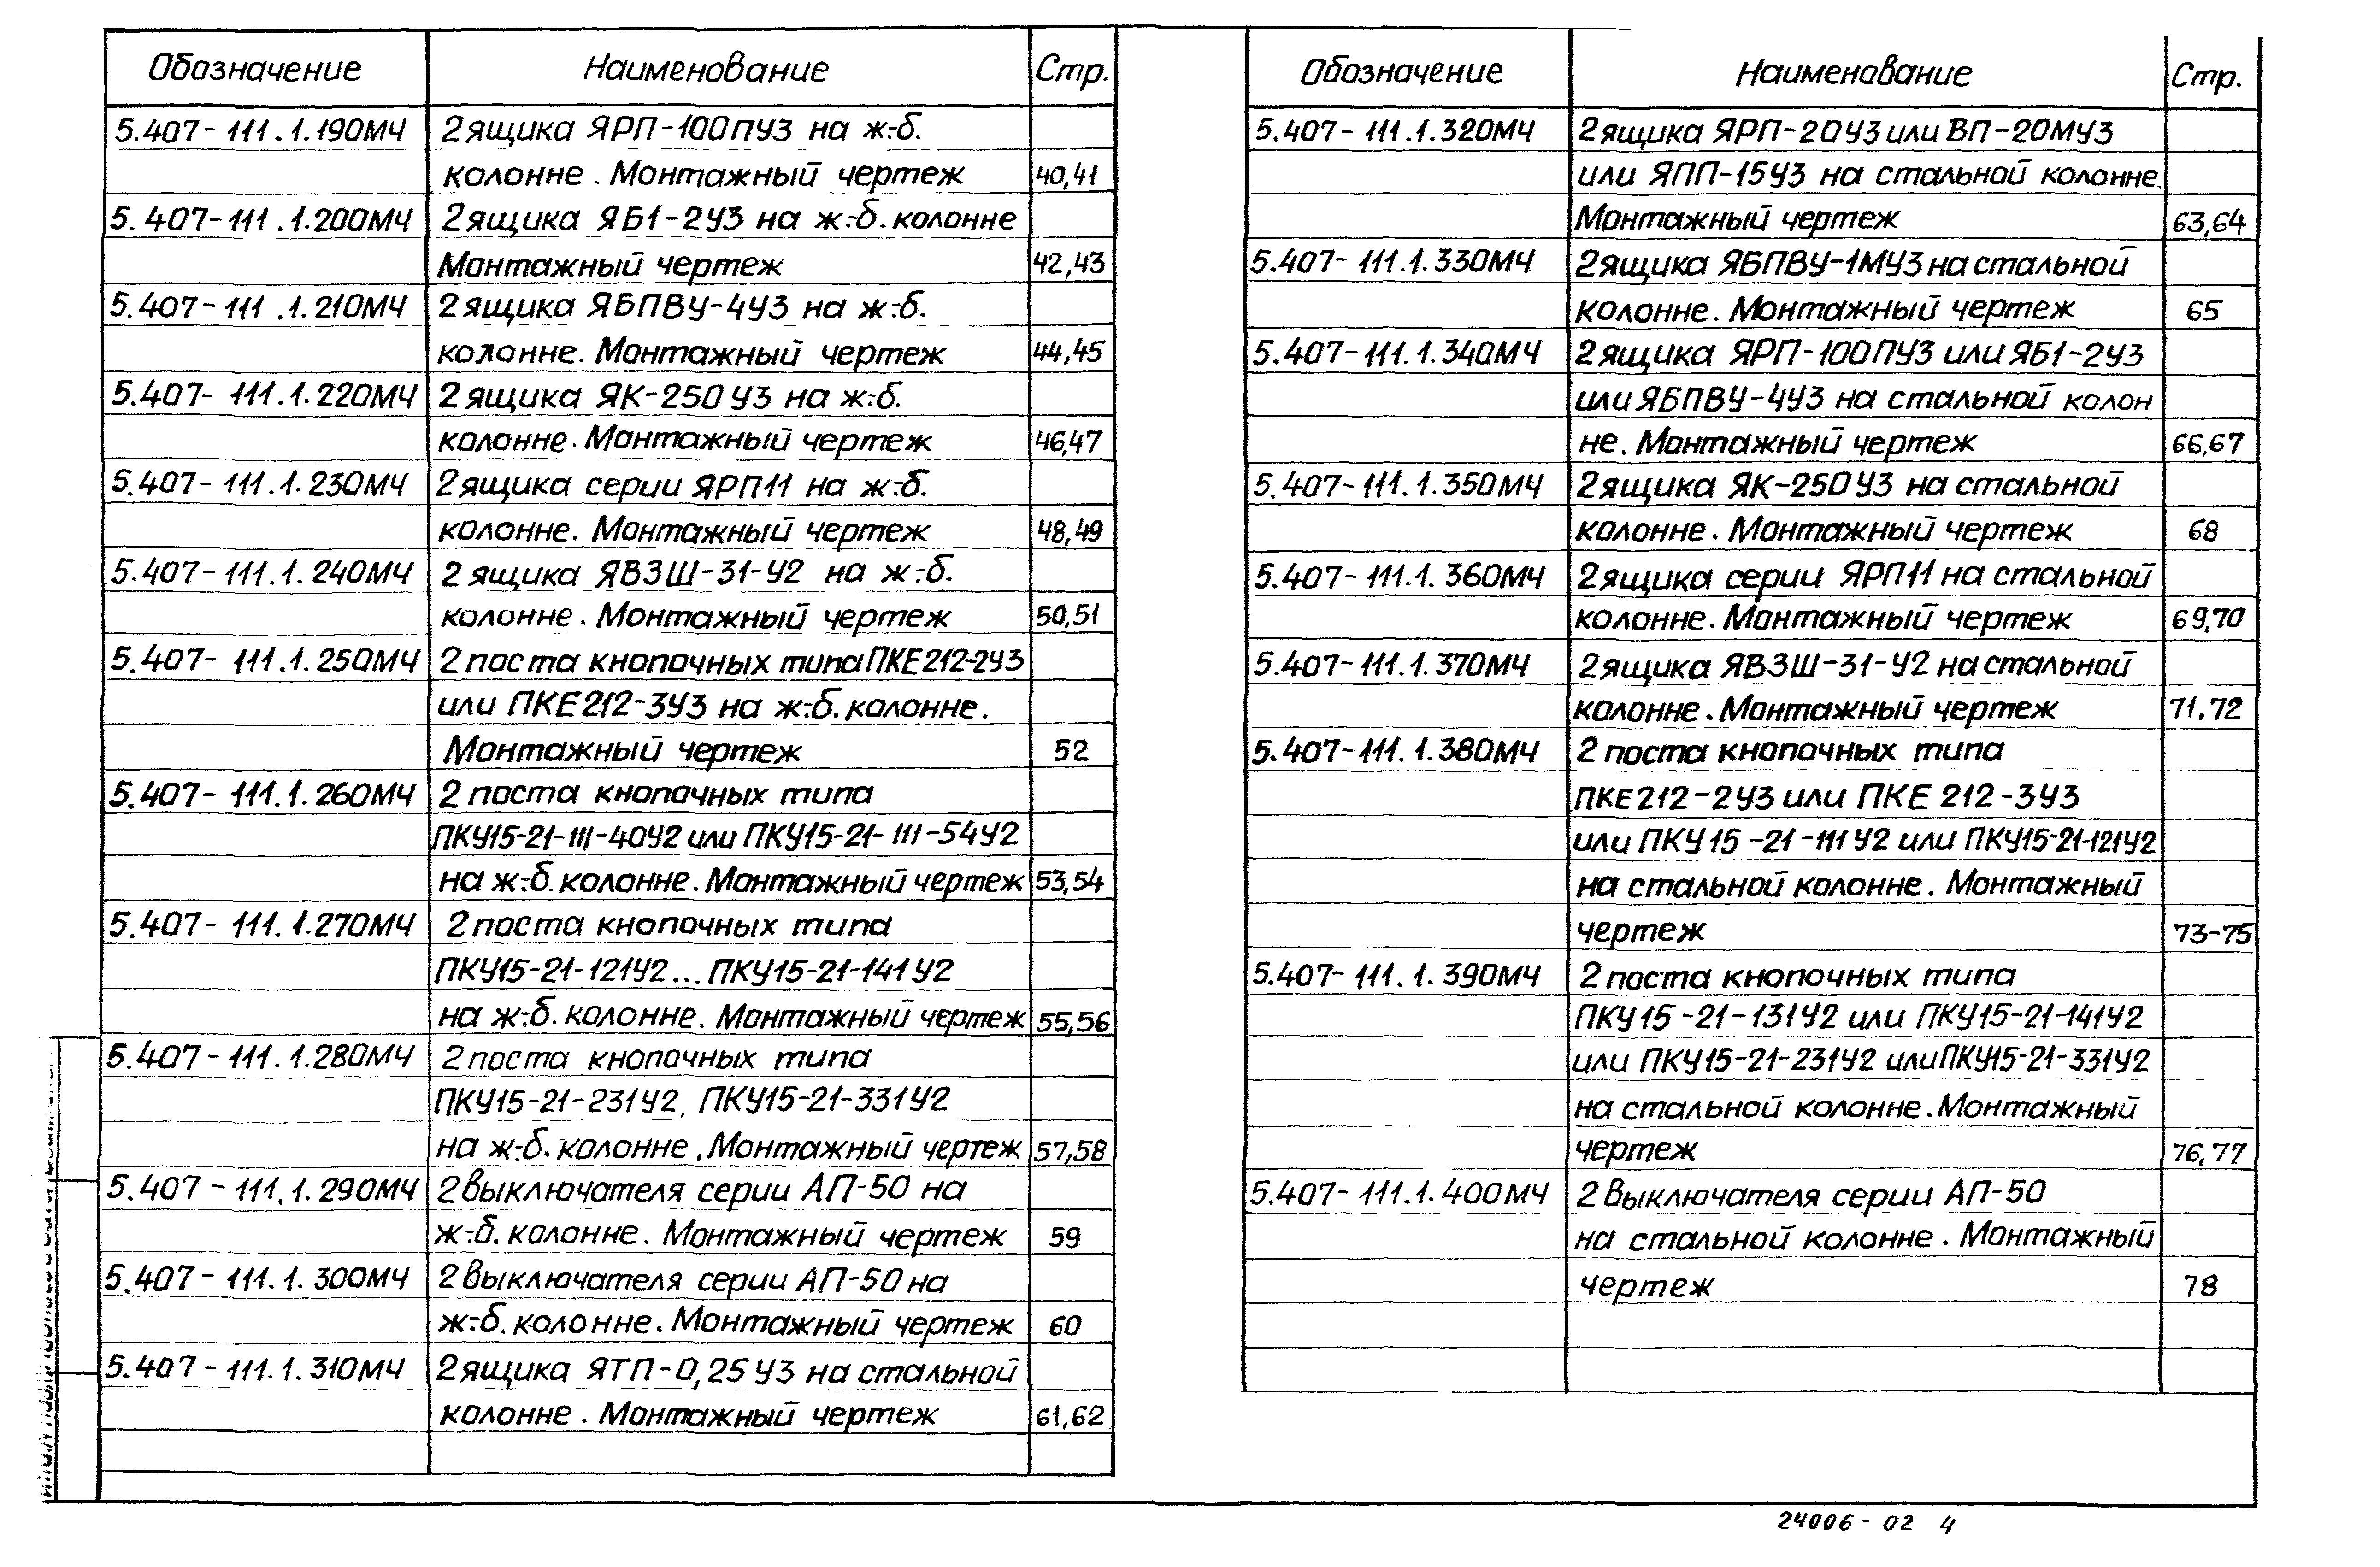 Обозначение Наименование Стр.
5.407-111.1.190МЧ 2 ящика ЯРП-100ПУ3 на ж.-б.
колонне. Монтажный чертеж 40,41
5.407-111.1.200МЧ 2 ящика ЯБ1-2У3 на ж.-б. колонне
Монтажный чертеж 42,43
5.407-111.1.210МЧ 2 ящика ЯБПВУ-4У3 на ж.-б.
колонне. Монтажный чертеж 44,45
5.407-111.1.220МЧ 2 ящика ЯК-250У3 на ж.-б.
колонне. Монтажный чертеж 46,47
5.407-111.1.230МЧ 2 ящика серии ЯРП11 на ж.-б.
колонне. Монтажный чертеж 48,49
5.407-111.1.240МЧ 2 ящика ЯВЗШ-31-У2 на ж.-б.
колонне. Монтажный чертеж 50,51
5.407-111.1.250МЧ 2 поста кнопочных типа ПКЕ212-2У3
или ПКЕ212-3У3 на ж.-б. колонне.
Монтажный чертеж 52
5.407-111.1.260МЧ 2 поста кнопочных типа
ПКУ15-21-111-40У2 или ПКУ15-21-111-54У2
на ж.-б. колонне. Монтажный чертеж 53,54
5.407-111.1.270МЧ 2 поста кнопочных типа
ПКУ15-21-121У2...ПКУ15-21-141У2
на ж.-б. колонне. Монтажный чертеж 55,56
5.407-111.1.280МЧ 2 поста кнопочных типа
ПКУ15-21-231У2, ПКУ15-21-331У2
на ж.-б. колонне. Монтажный чертеж 57,58
5.407-111.1.290МЧ 2 выключателя серии АП-50 на
ж.-б. колонне. Монтажный чертеж 59
5.407-111.1.300МЧ 2 выключателя серии АП-50 на
ж.-б. колонне. Монтажный чертеж 60
5.407-111.1.310МЧ 2 ящика ЯТП-0,25У3 на стальной
колонне. Монтажный чертеж 61,62
Обозначение Наименование Стр.
5.407-111.1.320МЧ 2 ящика ЯРП-20У3 или ВП-20МУ3
или ЯПП-15У3 на стальной колонне.
Монтажный чертеж 63,64
5.407-111.1.330МЧ 2 ящика ЯБПВУ-1МУ3 на стальной
колонне. Монтажный чертеж 65
5.407-111.1.340МЧ 2 ящика ЯРП-100ПУ3 или ЯБ1-2У3
или ЯБПВУ-4У3 на стальной колон
не. Монтажный чертеж 66,67
5.407-111.1.350МЧ 2 ящика ЯК-250У3 на стальной
колонне. Монтажный чертеж 68
5.407-111.1.360МЧ 2 ящика серии ЯРП11 на стальной
колонне. Монтажный чертеж 69,70
5.407-111.1.370МЧ 2 ящика ЯВЗШ-31-У2 на стальной
колонне. Монтажный чертеж 71.72
5.407-111.1.380МЧ 2 поста кнопочных типа
ПКЕ212-2У3 или ПКЕ 212-3У3
или ПКУ15-21-111У2 или ПКУ15-21-121У2
на стальной колонне. Монтажный
чертеж 73-75
5.407-111.1.390МЧ 2 поста кнопочных типа
ПКУ15-21-131У2 или ПКУ15-21-141У2
или ПКУ15-21-231У2 или ПКУ15-21-331У2
на стальной колонне. Монтажный
чертеж 76,77
5.407-111.1.400МЧ 2 выключателя серии АП-50
на стальной колонне. Монтажный
чертеж 78
24006-02 4